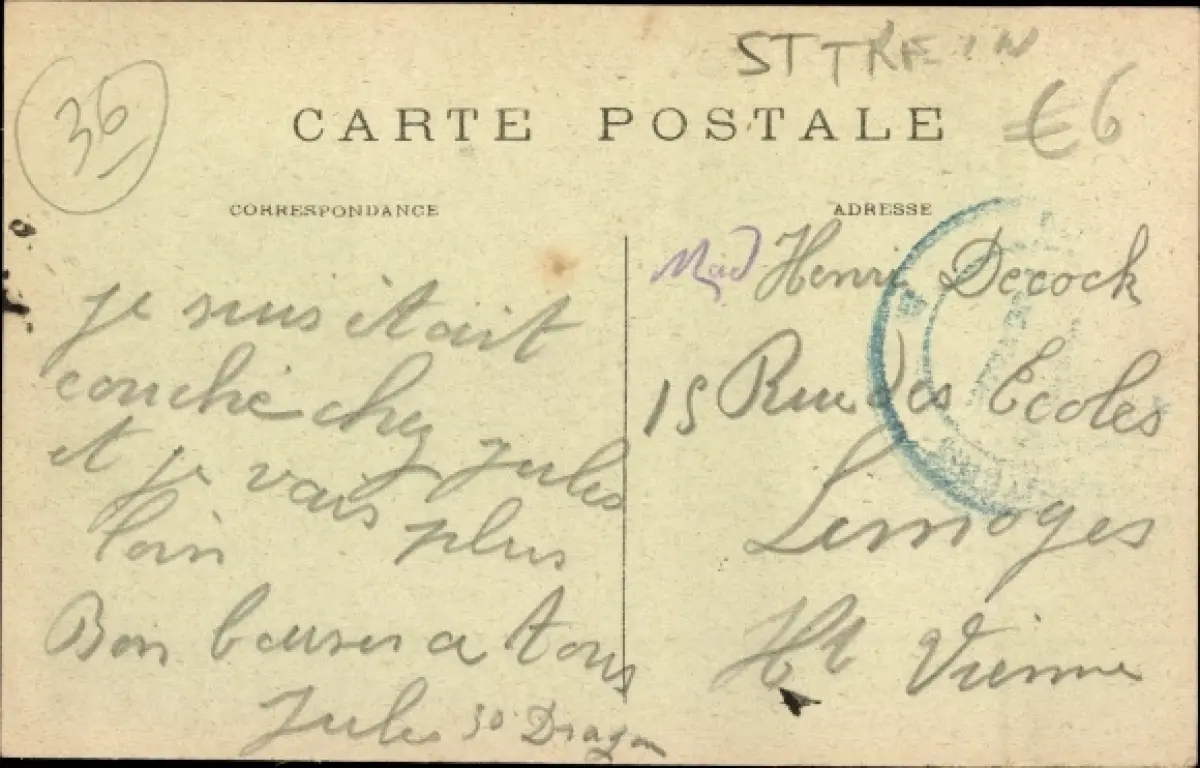 36
ST TREIN
€6
CARTE POSTALE
CORRESPONDANCE
ADRESSE
je suis était
couché chez Jules
et je vais plus
loin
Bon bauser a tous
Jules 30 Dragon
Mad Henri Decock
15 Rue des Ecoles
Limoges
Ht Vienne